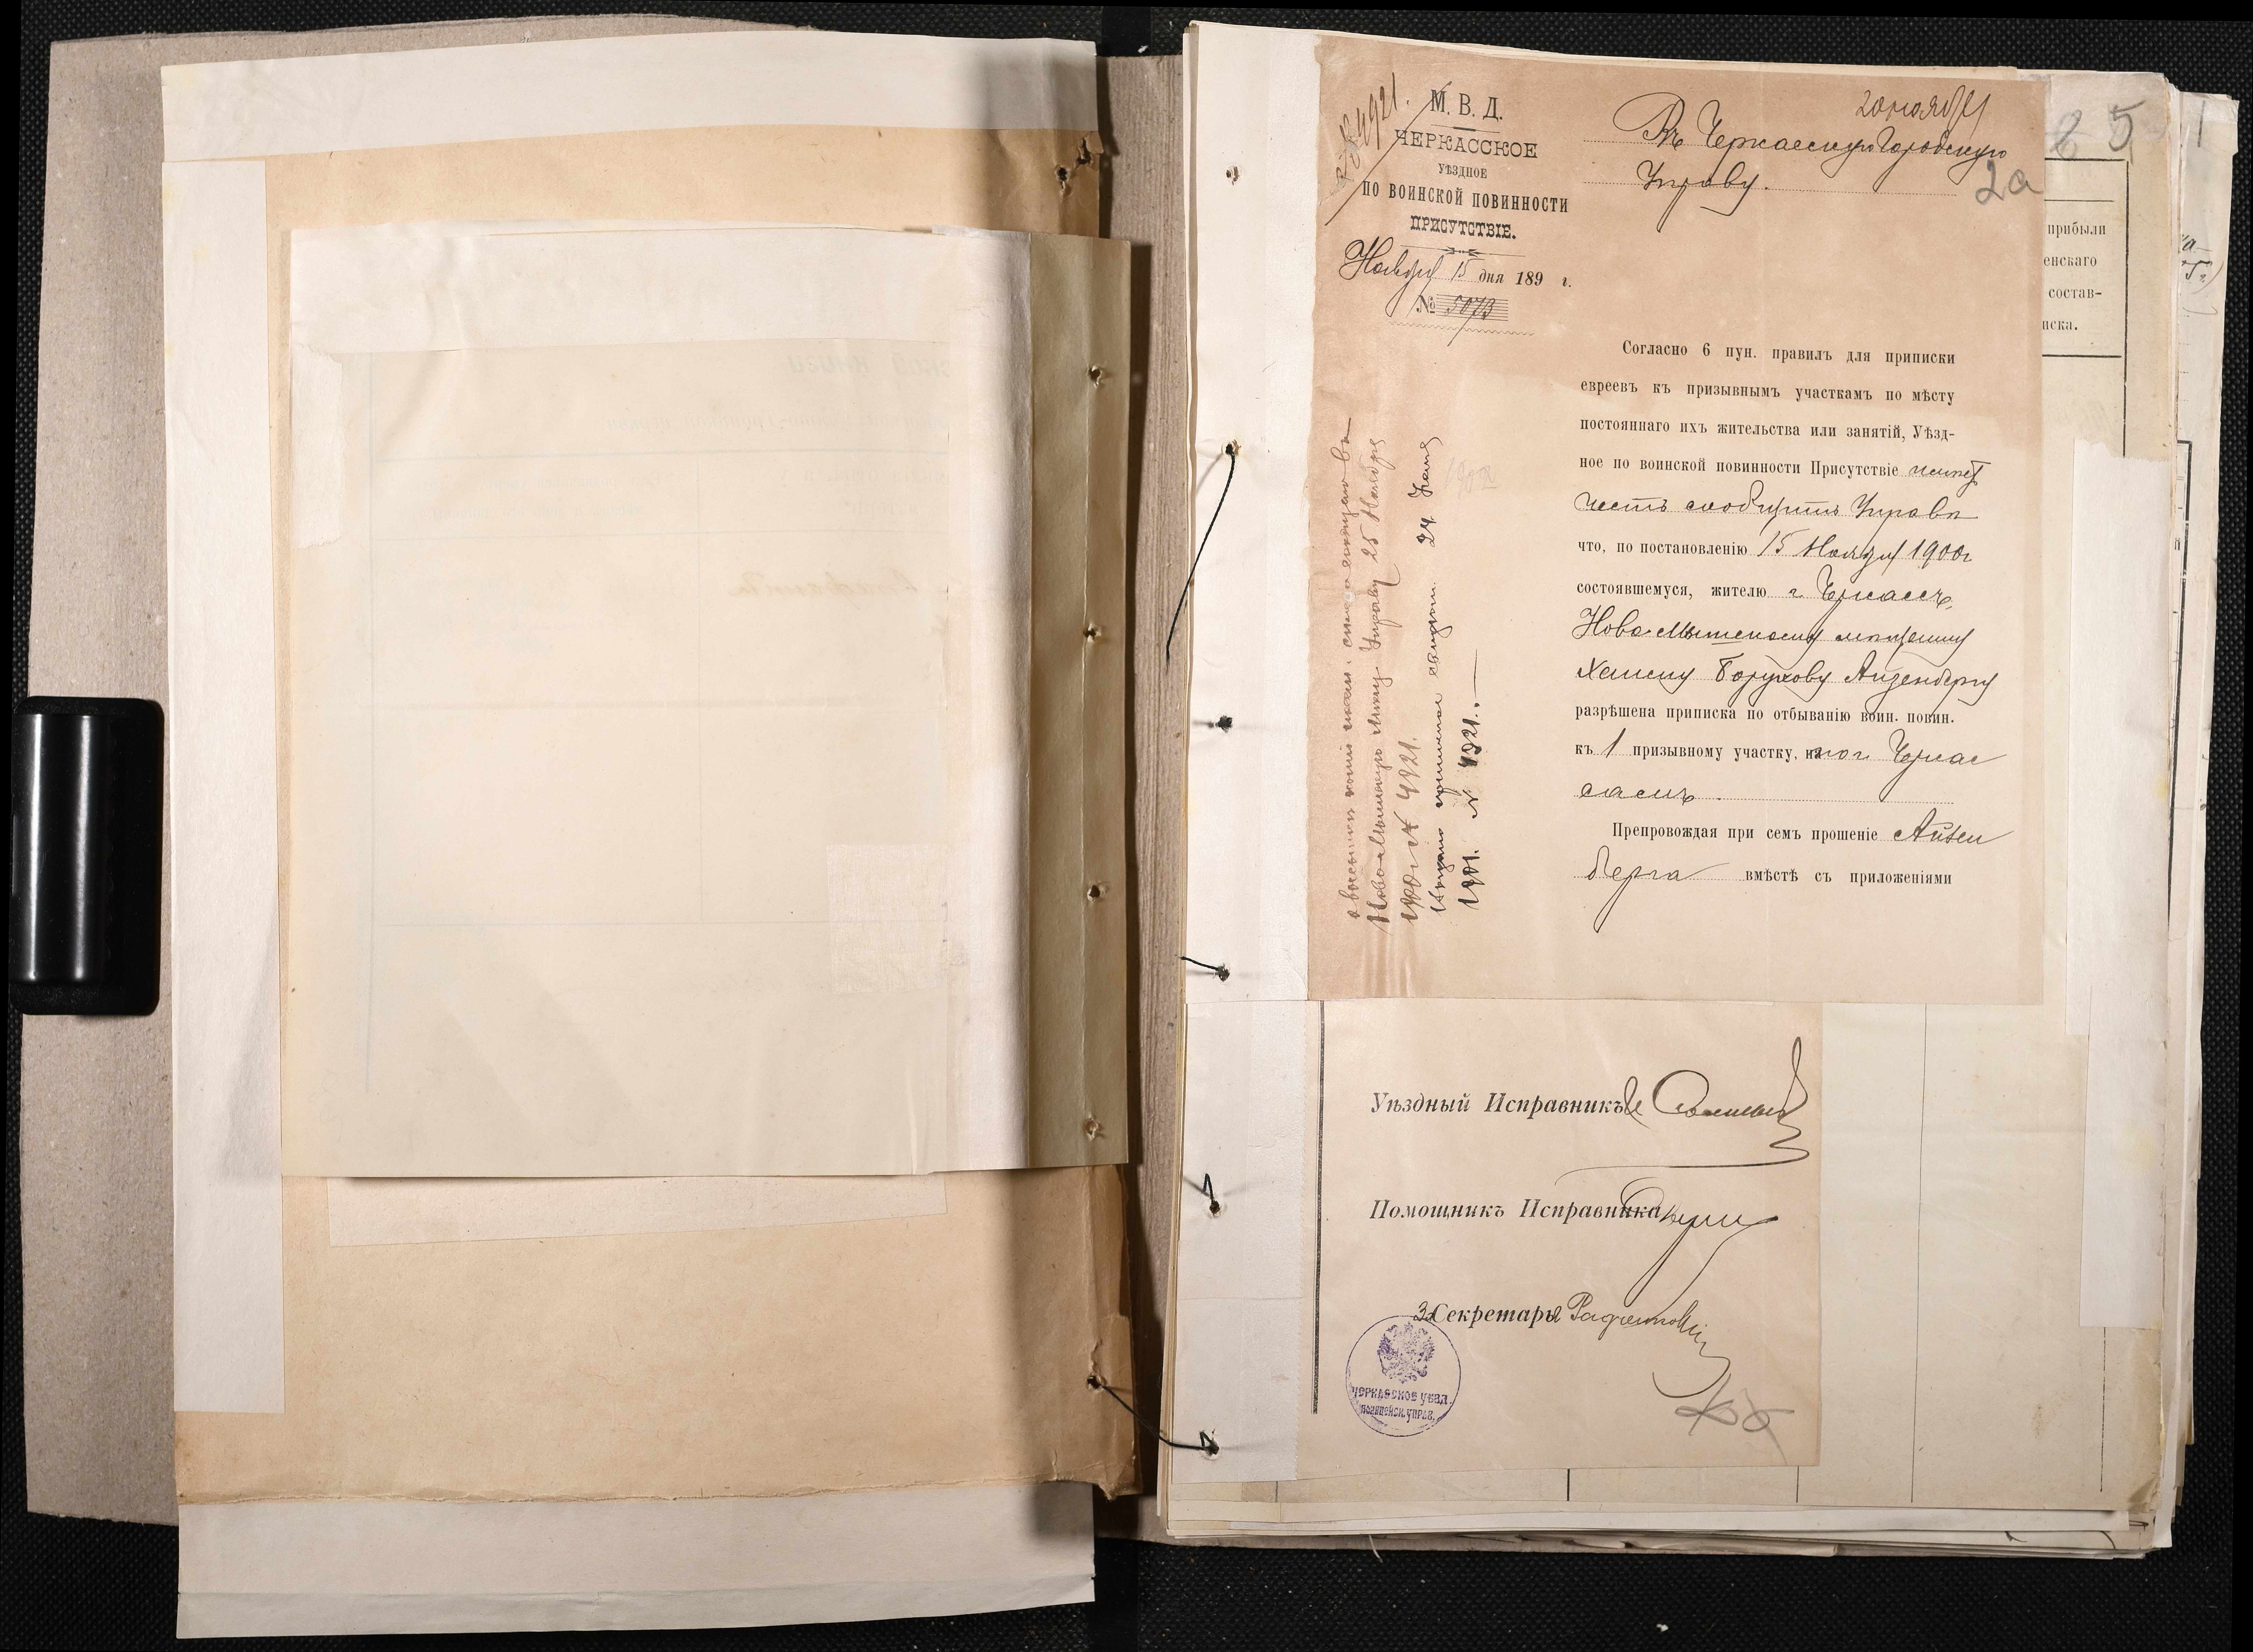 № 4921.
М. В. Д.
ЧЕРКАССКОЕ
УѢЗДНОЕ
ПО ВОИНСКОЙ ПОВИННОСТИ
ПРИСУТСТВІЕ.
Ноября 15 дня 189 г.
№ 5073
20 ноября
Въ Черкасскую Городскую
Управу.
2а
25
1
прибыли
енскаго
состав-
иска.
Согласно 6 пун. правилъ для приписки
евреевъ къ призывнымъ участкамъ по мѣсту
постояннаго ихъ жительства или занятій, Уѣзд-
ное по воинской повинности Присутствіе имѣетъ
честь сообщить Управѣ
что, по постановленію 15 Ноября 1900 г
состоявшемуся, жителю г. Черкассъ,
Ново-Мышскому мѣщанину
Хаиму Борухову Айзенбергу
разрѣшена приписка по отбыванію воин. повин.
къ 1 призывному участку, по г. Черкас
самъ.
Препровождая при семъ прошеніе Айзен
берга вмѣстѣ съ приложеніями
о высылкѣ
Ново-Мышскую Управу 25 Ноября
1900 г. № 4921.
24
1901. № 4921.
Уѣздный Исправникъ
Помощникъ Исправника
За Секретаря
ЧЕРКАССКОЕ УѢЗД.
ПОЛИЦЕЙСК. УПРАВ.